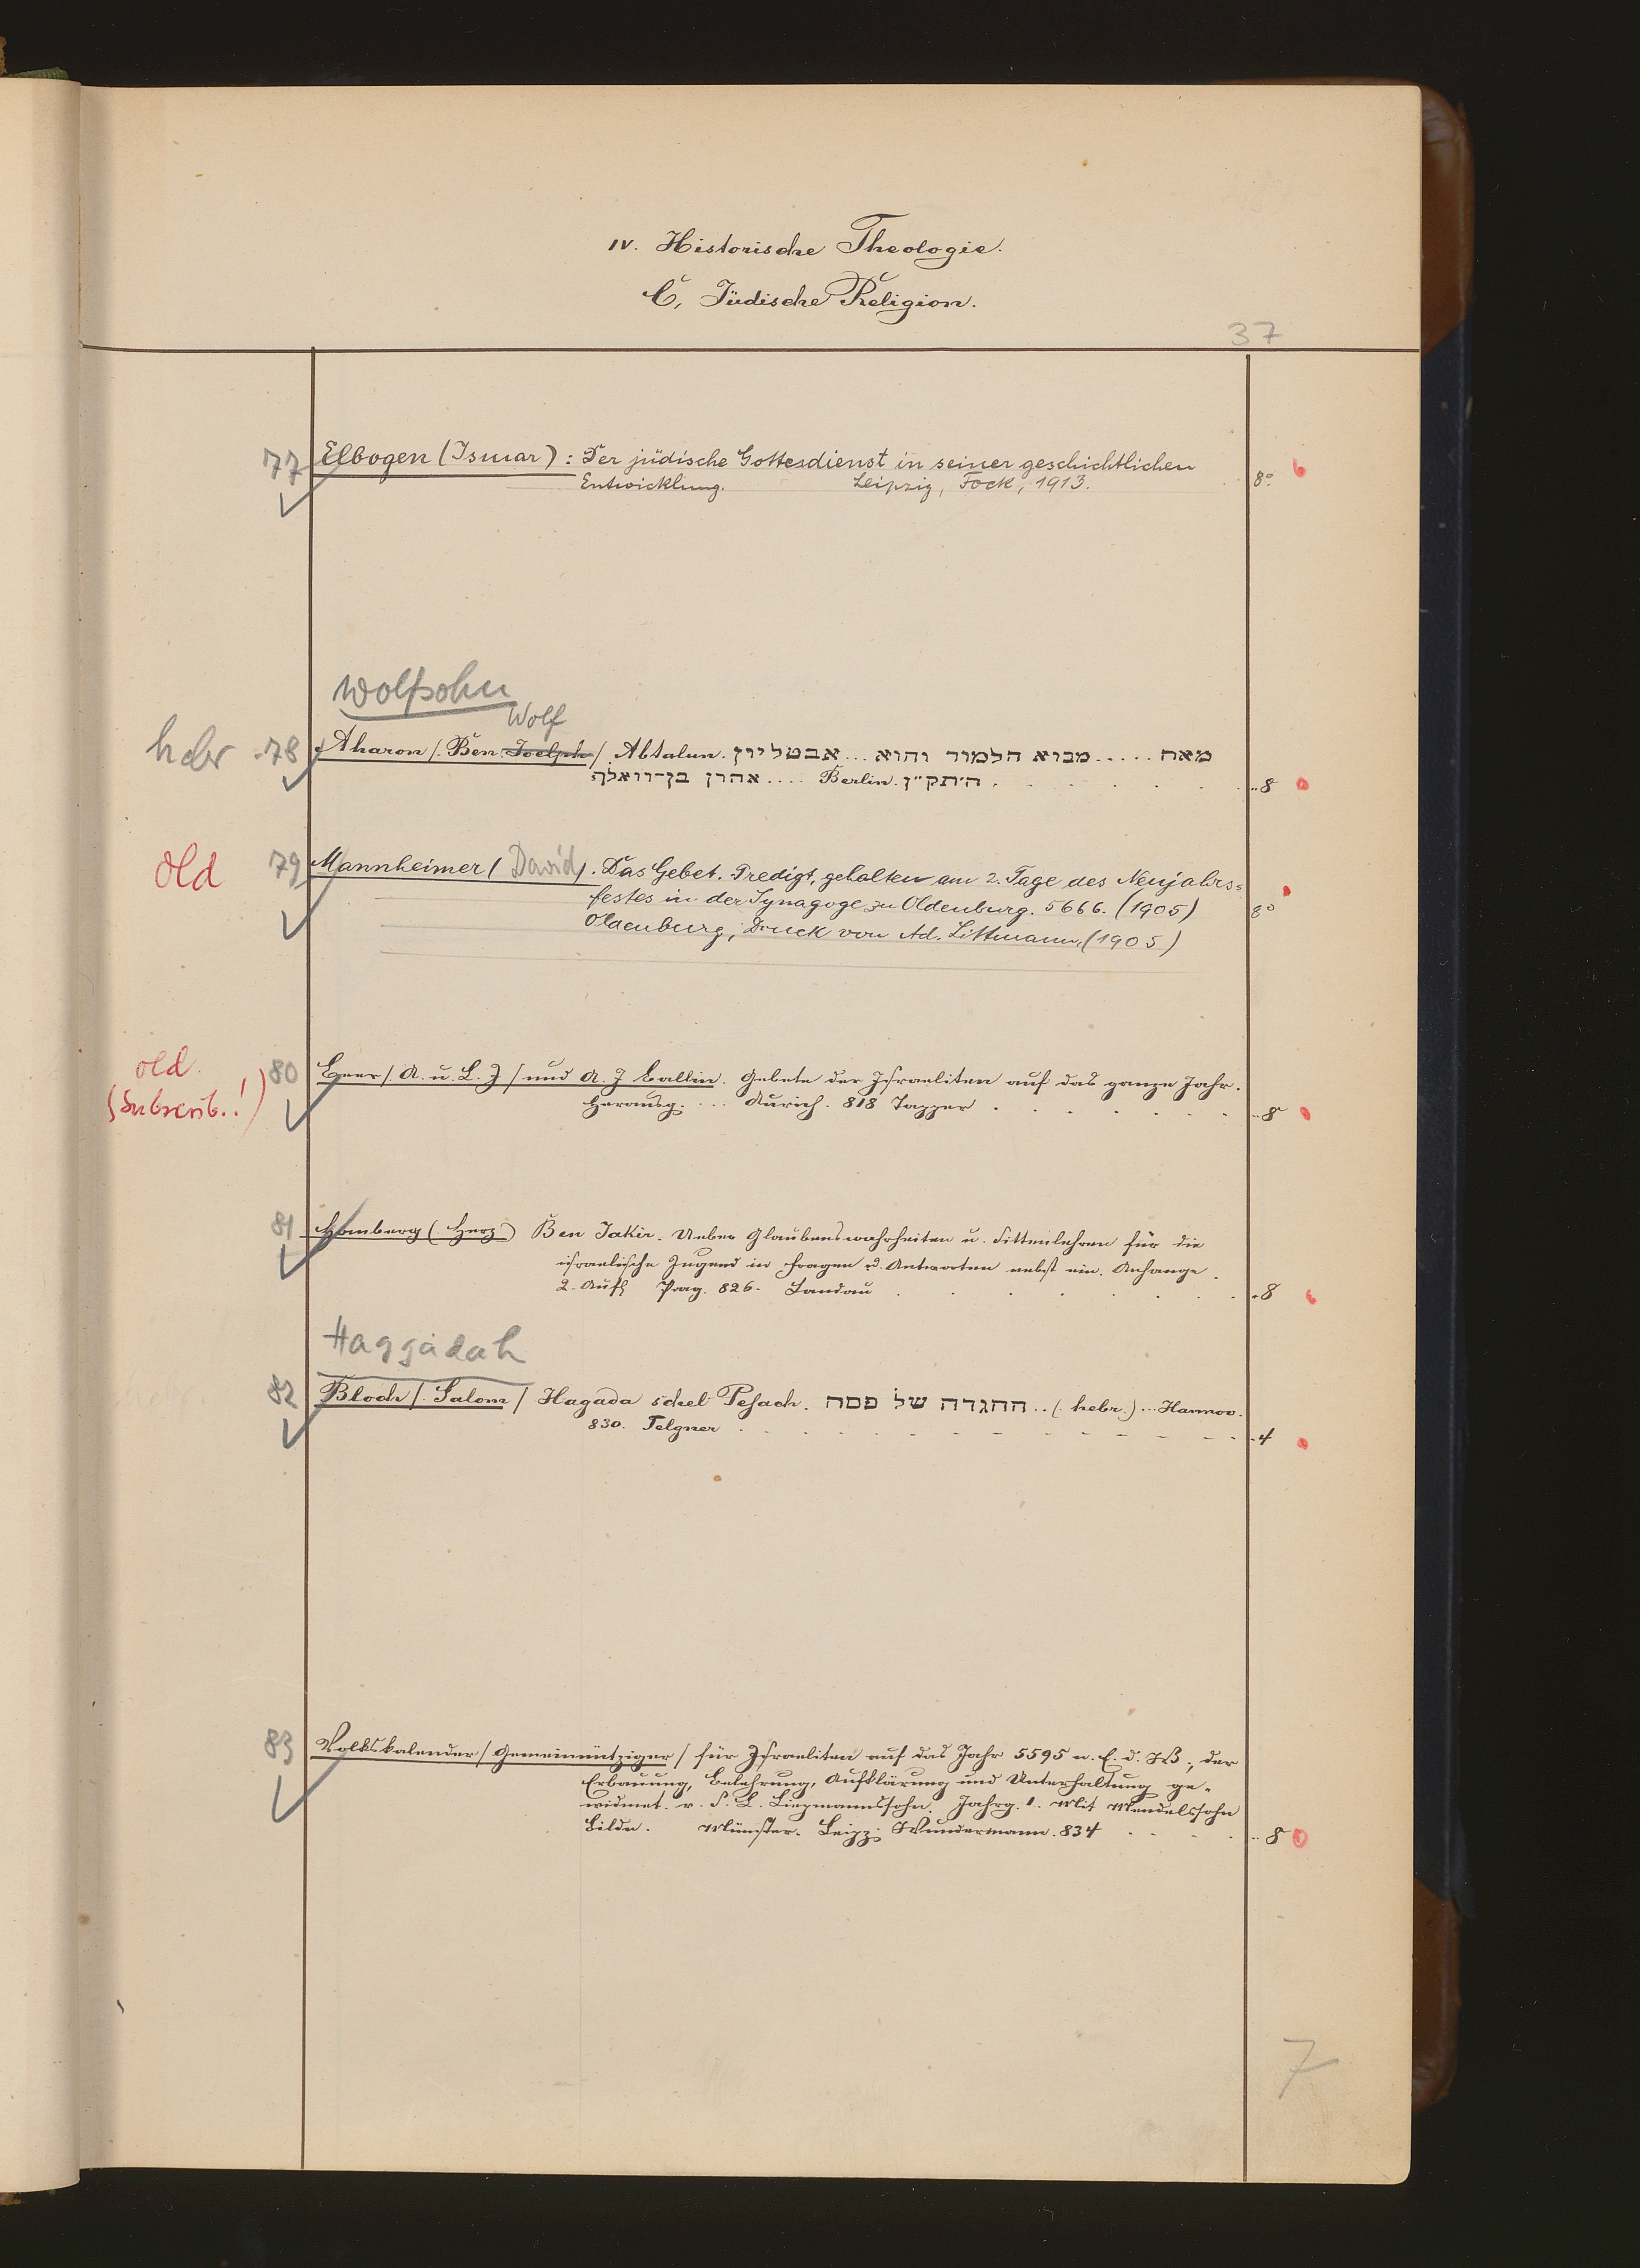 IV. Historische Theologie.
C, Jüdische Religion.
37
77 Elbogen (Ismar) : Der jüdische Gottesdienst in seiner geschichtlichen
Entwicklung. Leipzig, Fock, 1913. 8°.
Wolfsohn
Wolf
hebr 78 Aharon /. Ben Joelph /. Abtalun. אבטליון ... מבוא התלמוד והוא ..... מאת
אהרן בן-וואלף .... Berlin. ה׳תק״ן . 8
old 79 Mannheimer ( David ) . Das Gebet. Predigt, gehalten am 2. Tage des Neujahrs=
festes in der Synagoge zu Oldenburg. 5666. (1905) 8°
Oldenburg, Druck von Ad. Littmann, (1905)
old.
(Subscrib.!)
80 /. A. u. L. J / und A. J Ballin. Gebete der Israeliten auf das ganze Jahr.
Herausg. ... Aurich. 818 Tapper . 8
81 Homberg ( Herz ) Ben Jakir. Ueber Glaubenswahrheiten u. Sittenlehren für die
israelische Jugend in Fragen u. Antworten nebst ein. Anhange.
2. Aufl Prag. 826. Landau . 8
Haggadah
82 Bloch /. Salom / Hagada schel Pesach. ההגדה של פסח .. (. hebr.) ... Hannov.
830. Telgner . 4
83 Volkskalender / Gemeinnütziger / für Israeliten auf das Jahr 5595 n. E. d. W., der
Erbauung, Belehrung, Aufklärung und Unterhaltung ge-
widmet. v. S. L. Liepmannssohn. Jahrg. 1. Mit Mendelssohn
Bildn. Münster. Leipz: Wundermann. 834 . 8
7